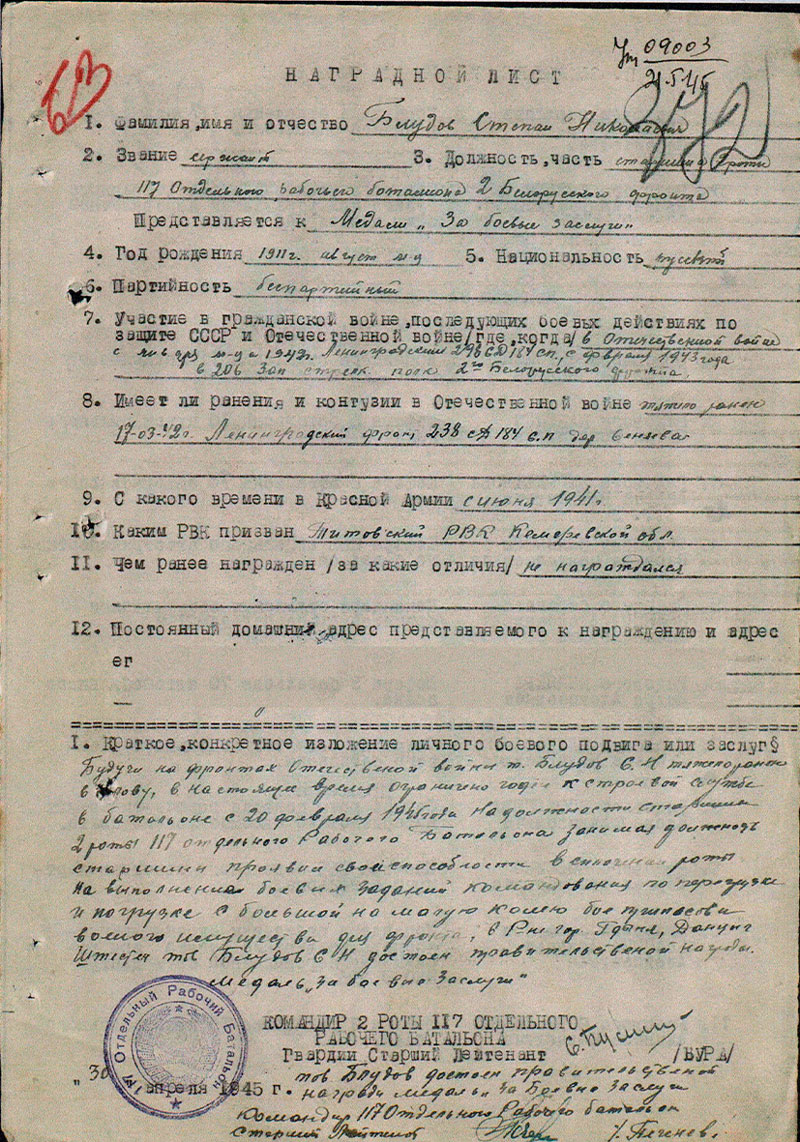 63
09003
21.5.45
НАГРАДНОЙ ЛИСТ
1. Фамилия,имя и отчество Блудов Степан Николаевич
2. Звание сержант 3. Должность,часть старшина роты
117 Отдельного рабочего баталиона 2 Белорусского фронта
Представляется к Медали „За боевые заслуги"
4. Год рождения 1911г. август м-ц 5. Национальность русский
6. Партийность беспартийный
7. Участие в гражданской войне,последующих боевых действиях по
защите СССР и Отечественной войне/где,когда/ в Отечественной войне
с января м-ца 1942г. Ленинградский СД 184 сп. с февраля 1943 года
в 206 Зап стрелк. полк 2го Белорусского фронта.
8. Имеет ли ранения и контузии в Отечественной войне тяжело ранен
17-03-42г. Ленинградский фронт 238 сД 184 с.п дер
9. С какого времени в Красной Армии с июня 1941г
10. Каким РВК призван Титовский РВК Кемеревской обл.
11. Чем ранее награжден /за какие отличия/ не награждался
12. Постоянный домашний адрес представляемого к награждению и адрес
ег
I. Краткое,конкретное изложение личного боевого подвига или заслуг§
Будучи на фронтах Отечественой войны т. Блудов С.Н тяжело ранен
в голову, в настоящие время ограничено годен к строевой службе
в батальоне с 20 февраля 1945 года на должности старшины
2 роты 117 отдельного Рабочего Батальона занимая должность
старшины проявил свои способности в роты
на выполнения боевых заданий командования по перегрузке
и погрузке с большой на малую колею боеприпасов и
военого имущества для фронта, в Р-не гор. Гдыня, Данциг
Штетен тов Блудов С Н достоен правительственой награды.
Медаль „За боевые Заслуги"
КОМАНДИР 2 РОТЫ 117 ОТДЕЛЬНОГО
РАБОЧЕГО БАТАЛЬОНА
Гвардии Старший Лейтенант /БУРА/
117 Отдельный Рабочий Батальон
„30 апреля 1945 г.
тов Блудов достоен правительственой
награды медаль „За Боевые Заслуги
Командир 117 Отдельного Рабочего батальон
Старший Лейтенант